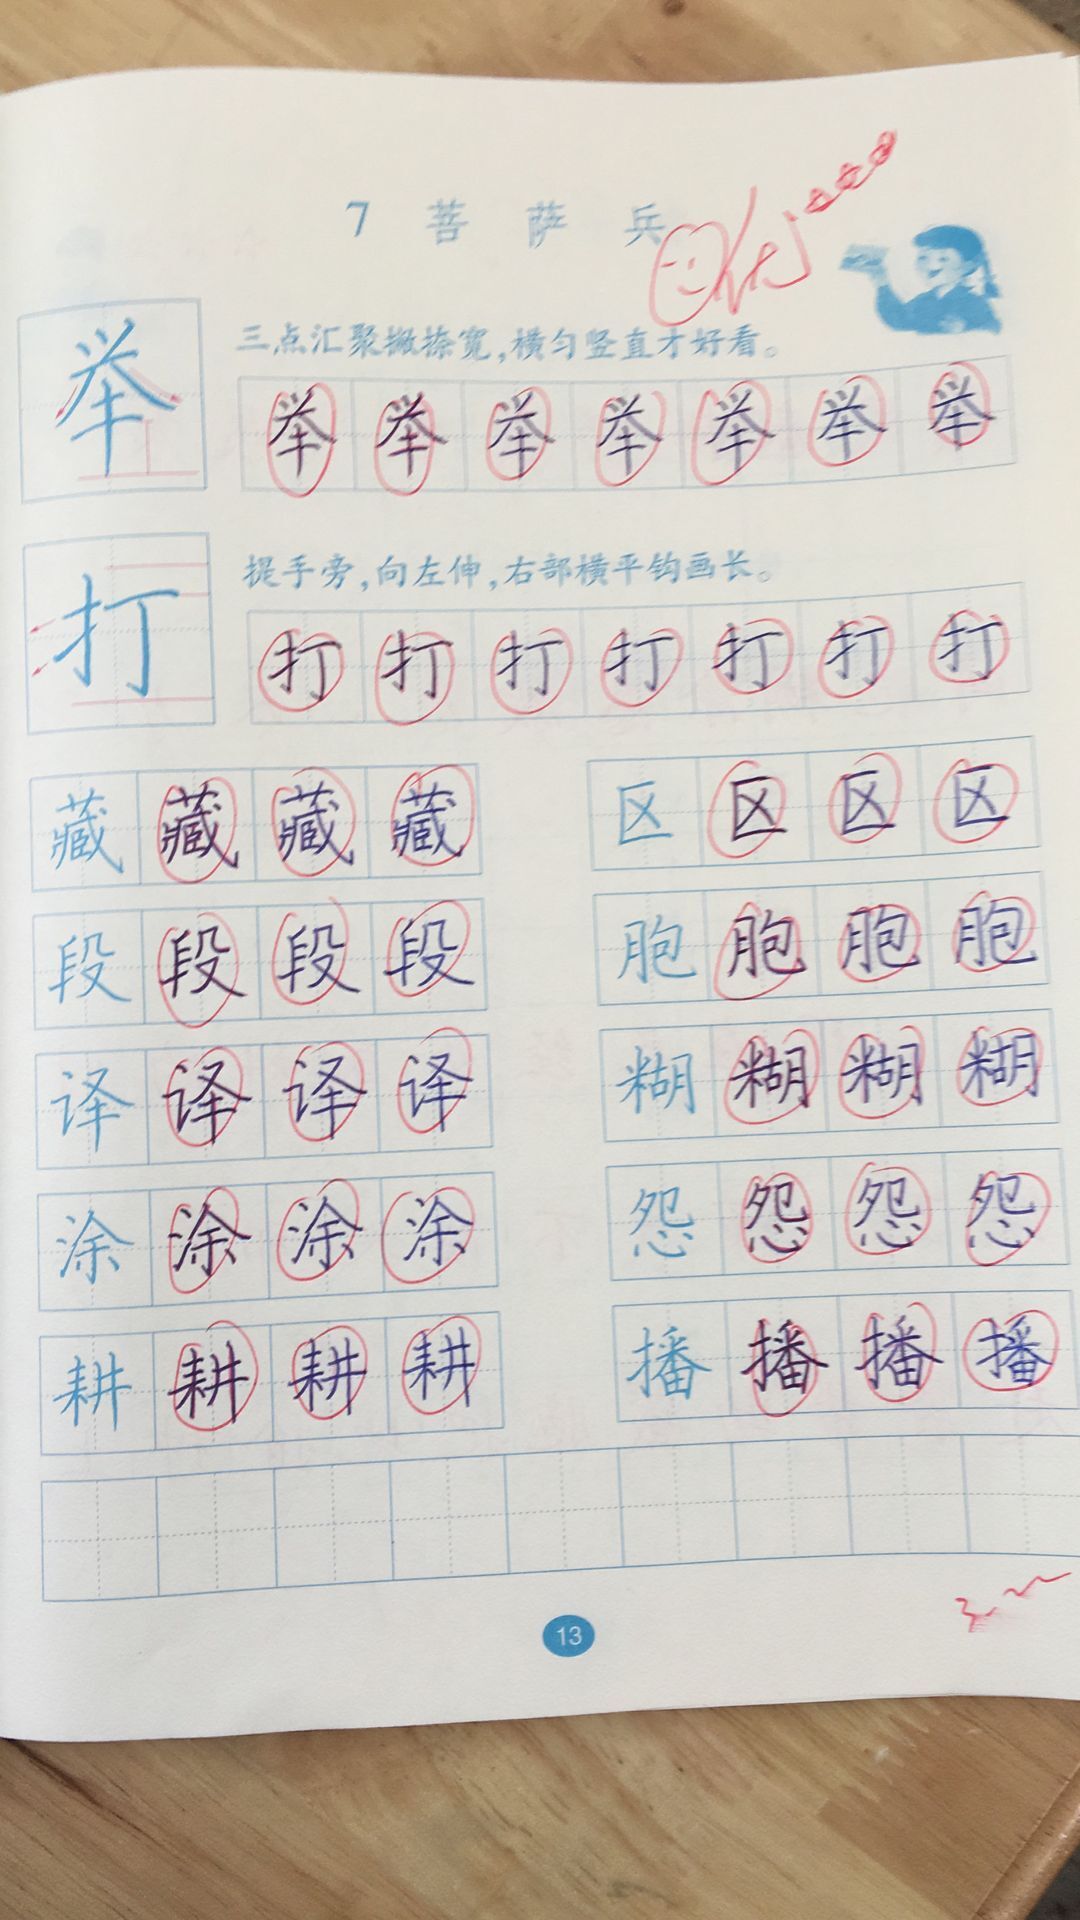 7 菩萨兵 优
举 三点汇聚撇捺宽，横匀竖直才好看。
举 举 举 举 举 举 举
打 提手旁，向左伸，右部横平钩画长。
打 打 打 打 打 打 打
藏 藏 藏 藏 区 区 区 区
段 段 段 段 胞 胞 胞 胞
译 译 译 译 糊 糊 糊 糊
涂 涂 涂 涂 怨 怨 怨 怨
耕 耕 耕 耕 播 播 播 播
13